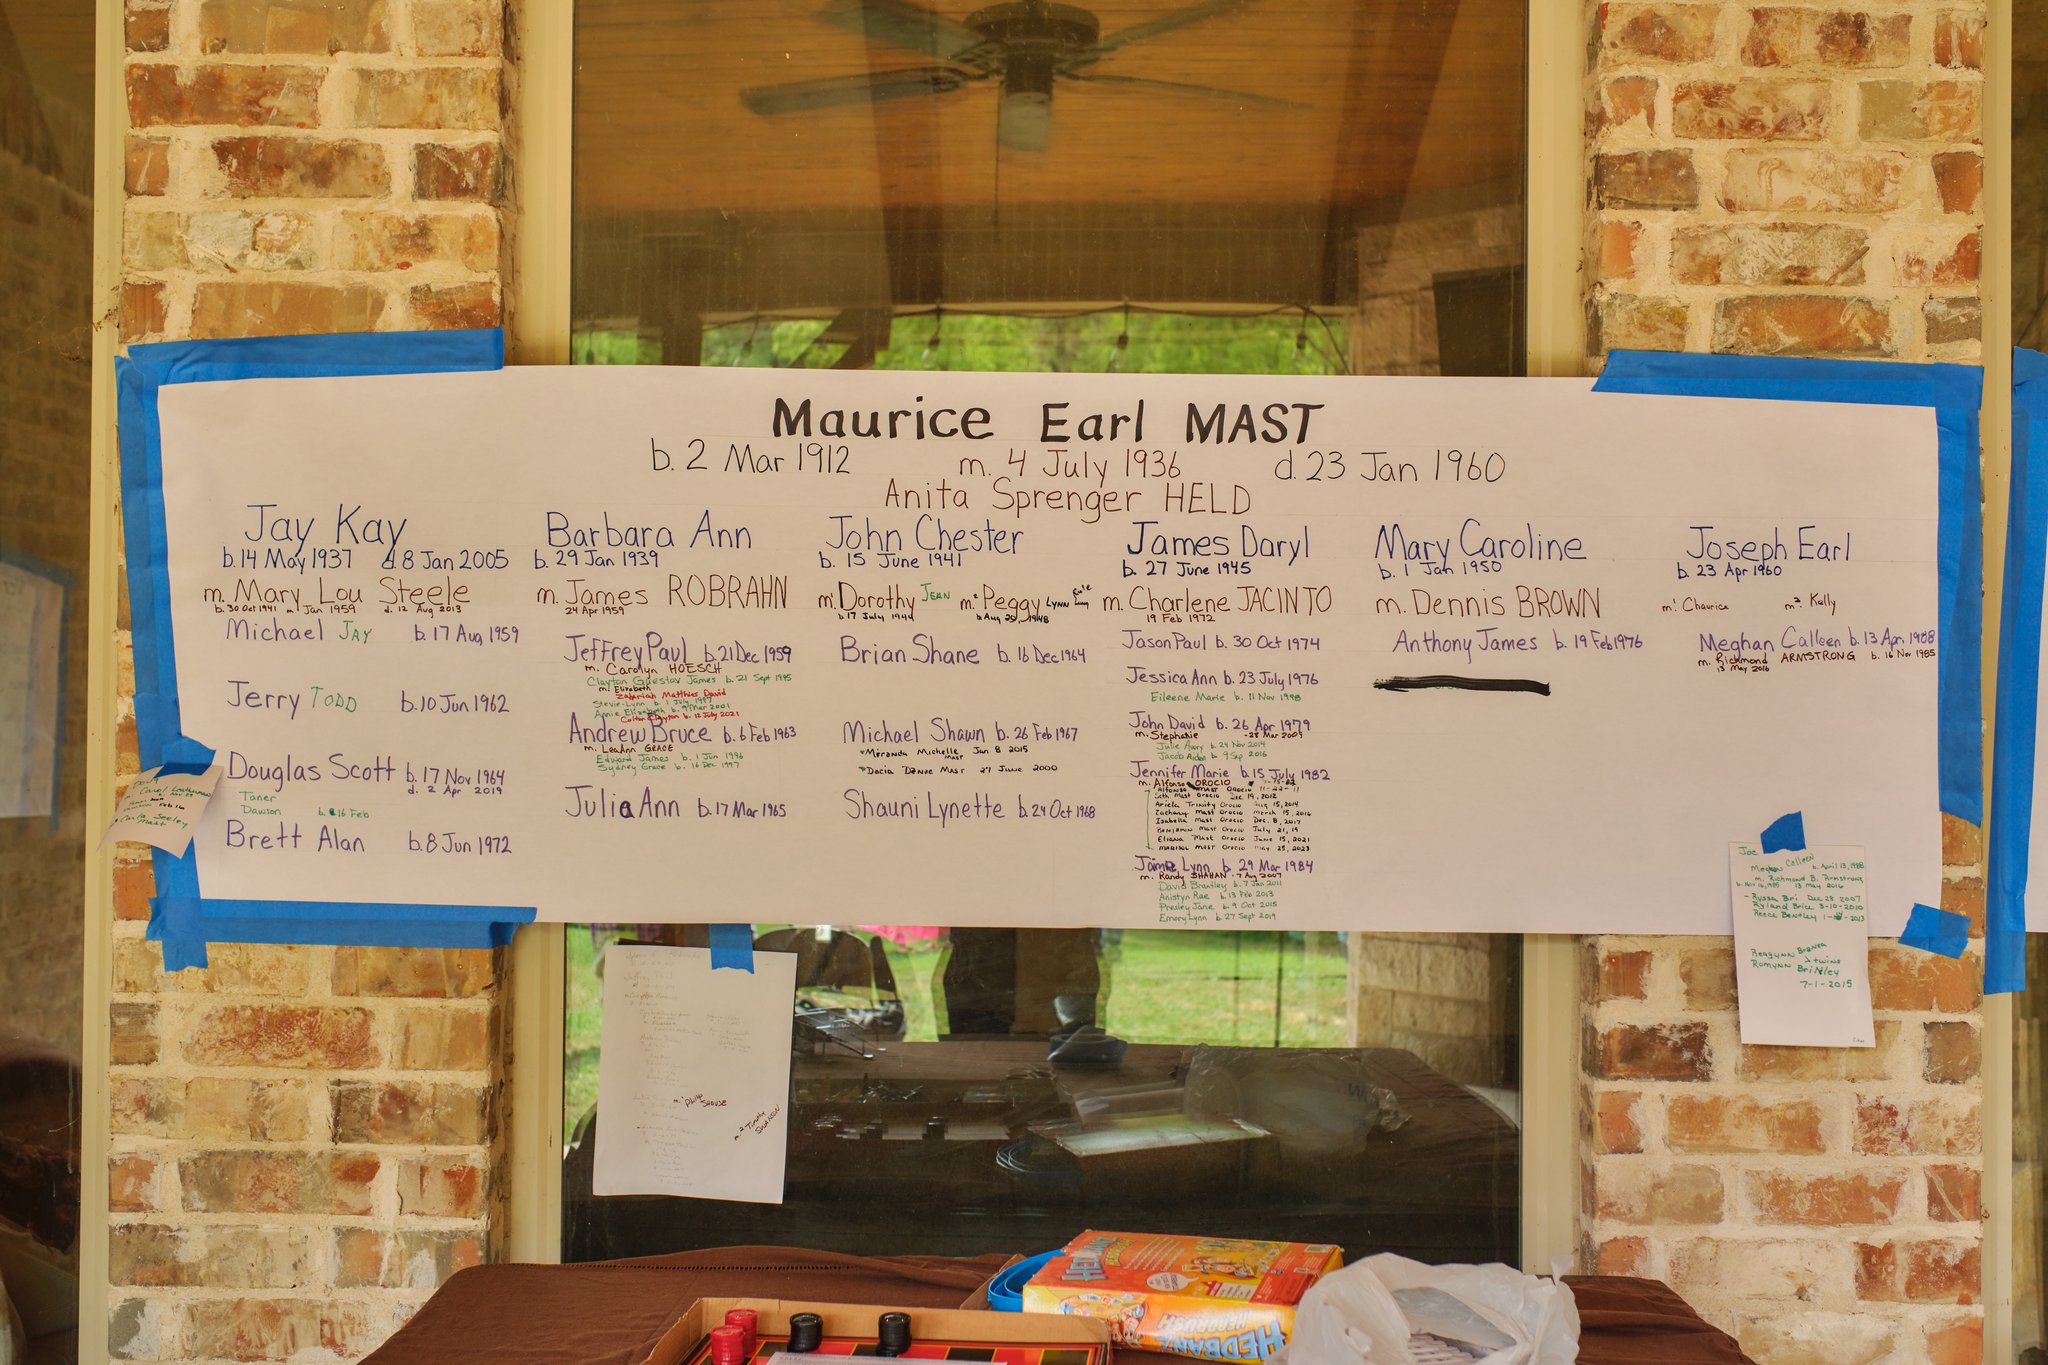 Maurice Earl MAST
b. 2 Mar 1912 m. 4 July 1936 d. 23 Jan 1960
Anita Sprenger HELD
Jay Kay
b. 14 May 1937 d. 8 Jan 2005
m. Mary Lou Steele
b. 30 Oct 1941 m Jan 1959 d. 12 Aug 2013
Michael JAY b. 17 Aug 1959
Jerry TODD b. 10 Jun 1962
Douglas Scott b. 17 Nov 1964
d. 2 Apr 2019
Taner
Dawson b. 16 Feb
Brett Alan b. 8 Jun 1972
Barbara Ann
b. 29 Jan 1939
m. James ROBRAHN
24 Apr 1959
Jeffrey Paul b. 21 Dec 1959
m. Carolyn HOESCH
Clayton Gustav James b. 21 Sept 1995
m. Elizabeth
Zakariah Matthies David
Stevie-Lynn b. 1 July 1997
Annie Elizabeth b. 9 Mar 2001
Colton Clayton b. 12 July 2021
Andrew Bruce b. 6 Feb 1963
m. LeaAnn GRACE
Edward James b. 1 Jun 1996
Sydney Grace b. 16 Dec 1997
Julia Ann b. 17 Mar 1965
John Chester
b. 15 June 1941
m.¹ Dorothy JEAN m.² Peggy LYNN
b. 17 July 1944 b. Aug 25, 1948
Brian Shane b. 16 Dec 1964
Michael Shawn b. 26 Feb 1967
Miranda Michelle Jan 8 2015
MAST
Dacia Danae MAST 27 June 2000
Shauni Lynette b. 24 Oct 1968
James Daryl
b. 27 June 1945
m. Charlene JACINTO
19 Feb 1972
Jason Paul b. 30 Oct 1974
Jessica Ann b. 23 July 1976
Eileene Marie b. 11 Nov 1998
John David b. 26 Apr 1979
m. Stephanie -28 Mar 2009
Julie Avery b. 24 Nov 2014
Jacob Aiden b. 9 Sep 2016
Jennifer Marie b. 15 July 1982
m. Alfonso OROCIO
Alfonso MAST Orocio 11-22-11
Seth Mast Orocio Dec 19, 2012
Ariela Trinity Orocio Aug 15, 2014
Zachary Mast Orocio March 15, 2016
Isabella Mast Orocio Dec. 8, 2017
Benjamin Mast Orocio July 21, 19
Eliana Mast Orocio June 15, 2021
MARISOL MAST Orocio May 25, 2023
Jamie Lynn b. 29 Mar 1984
m. Randy SHAHAN - 7 Aug 2007
David Brantley b. 7 Jan 2011
Anistyn Rae b. 13 Feb 2013
Presley Jane b. 9 Oct 2015
Emory Lynn b. 27 Sept 2019
Mary Caroline
b. 1 Jan 1950
m. Dennis BROWN
Anthony James b. 19 Feb 1976
Joseph Earl
b. 23 Apr 1960
m.¹ Chaurice m.² Kelly
Meghan Calleen b. 13 Apr 1988
m. Richmond ARMSTRONG b. 16 Nov 1985
13 May 2016
Feb 16
Carla Seeley
Mast
m.¹ Philip
SHOUSE
m.² Timothy
SWANSON
Joe
Meghan Calleen b. April 13, 1988
m. Richmond B. Armstrong
b. Nov 16, 1985 13 May 2016
- Ryssa Bri Dec 28 2007
Ryland Brice 3-10-2010
Reece Bentley
Reagynn Branea
> twins
Romynn Brinley
7-1-2015
HEDBANZ
HEDBANZ